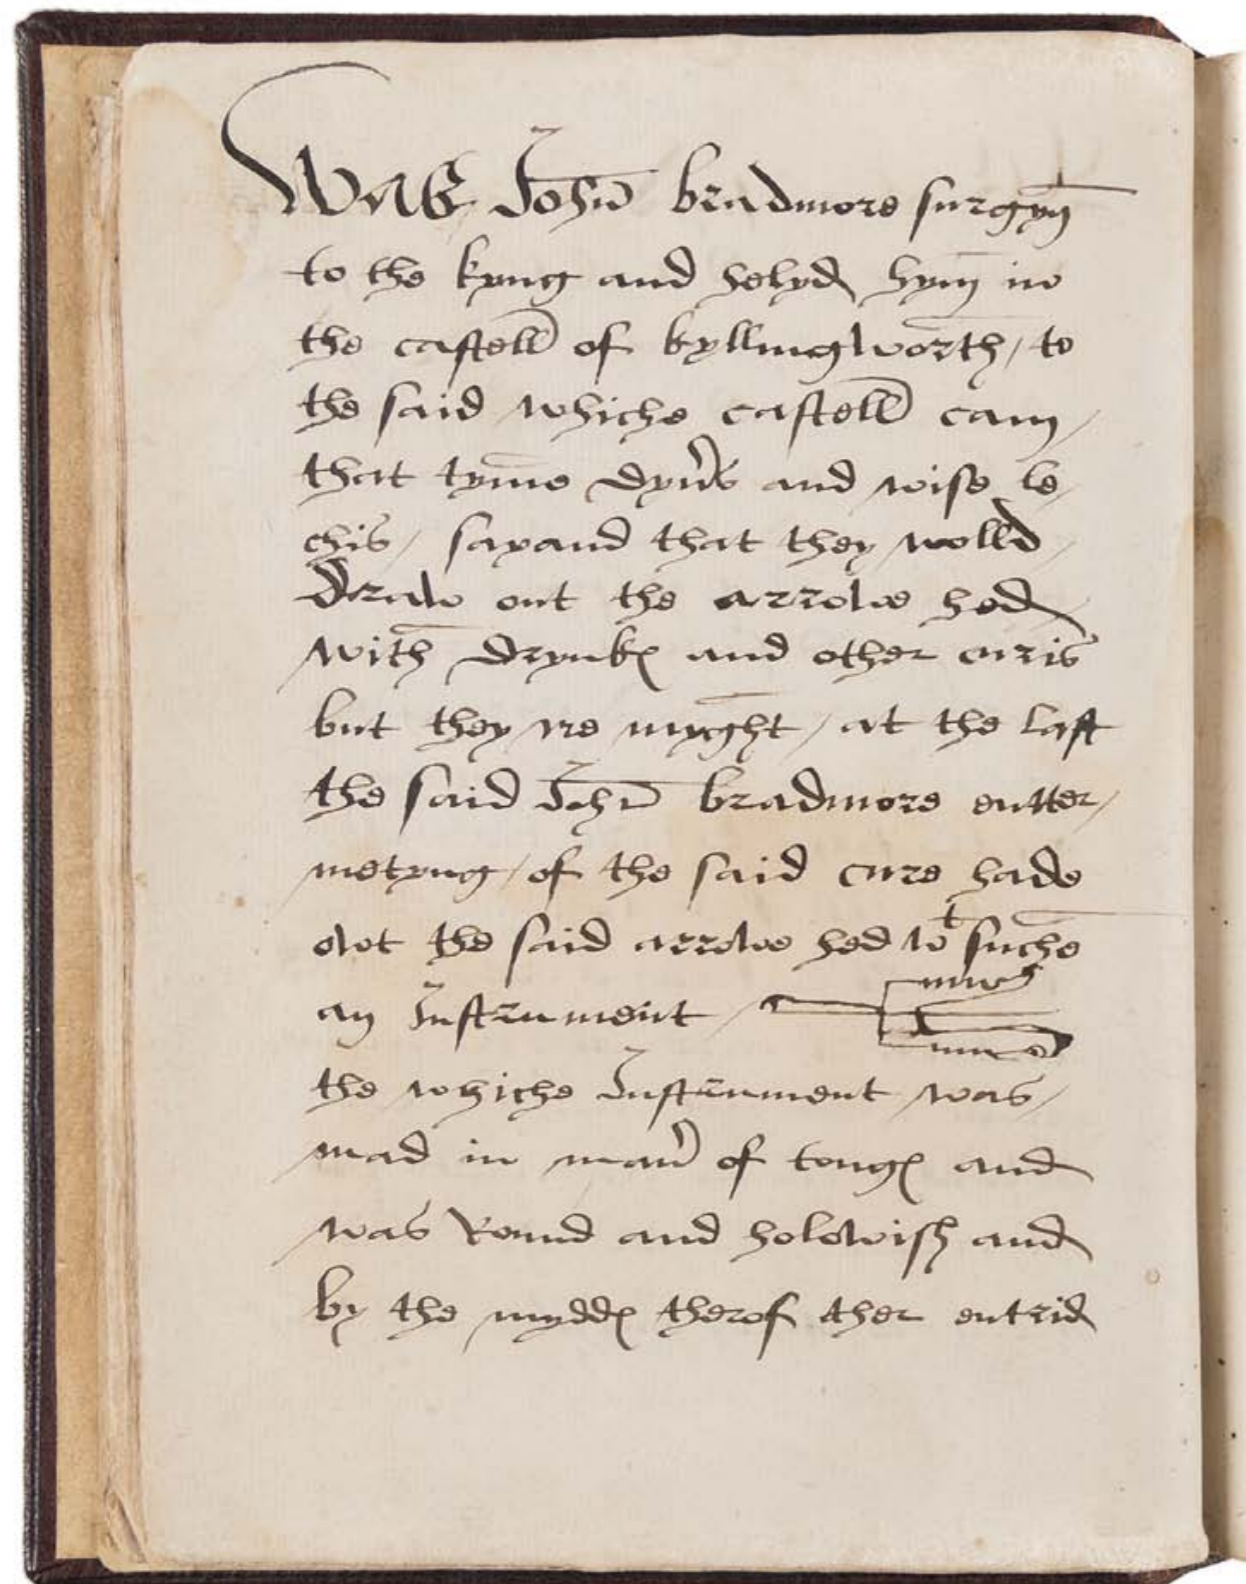 Was John̄ bradmore surgyn̄
to the kyng and helyd hym̄ in
the castell of kyllingworth / to
the said whiche castell cam /
that tyme dyu's and wise le /
chis / sayand that they wolld /
Draw out the arrowe hed
with drynkꝭ and other curis
but they ne myght / at the last
the said John̄ bradmore entter /
metyng / of the said cure hade
owt the said arrowe hed wᵗ suche
an Instrument /
the whiche Instrument was /
mad in man' of tongꝭ and
was Round and holowish and
by the myddꝭ therof ther entrid